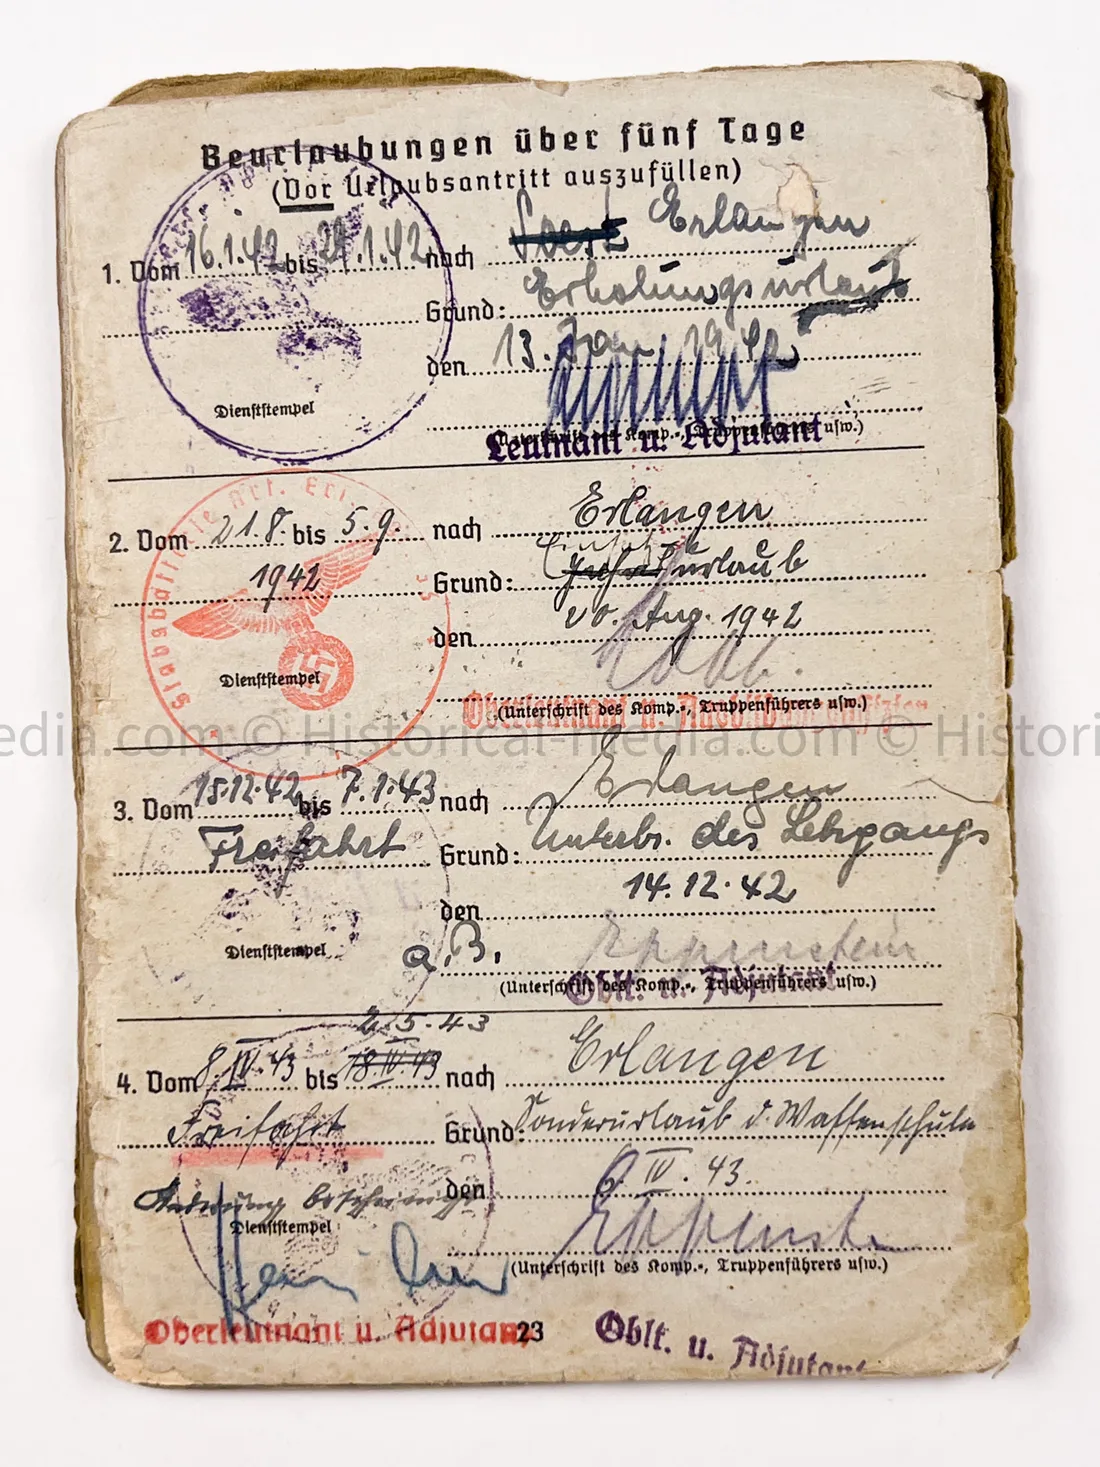 Beurlaubungen über fünf Tage
(Vor Urlaubsantritt auszufüllen)
1. Vom 16.1.42 bis 29.1.42 nach Soest Erlangen
Grund: Erholungsurlaub
den 13. Jan 1942
Dienststempel
(Unterschrift des Komp.-, Truppenführers usw.)
Leutnant u. Adjutant
Stabsbatterie Art. Ers.
2. Vom 21.8. bis 5.9. nach Erlangen
1942 Grund: urlaub
den 20. Aug. 1942
Dienststempel
Oberleutnant u.
(Unterschrift des Komp.-, Truppenführers usw.)
edia.com © Historical-media.com © Histori
3. Vom 15.12.42 bis 7.1.43 nach Erlangen
Freifahrt Grund: Unterbr. des Lehrgangs
den 14.12.42
Dienststempel a.B. Eppinstein
(Unterschrift des Komp.-, Truppenführers usw.)
Oblt. u. Adjutant
2.5.43
4. Vom 8.IV.43 bis 18.IV.43 nach Erlangen
Freifahrt Grund: Sonderurlaub d. Waffenschule
den 6.IV.43.
Änderung bescheinigt
Dienststempel
(Unterschrift des Komp.-, Truppenführers usw.)
Oberleutnant u. Adjutant 23 Oblt. u. Adjutant